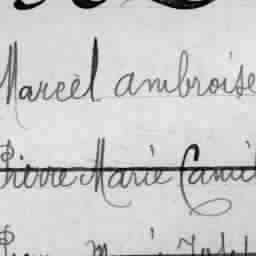 Marcel ambroise
Pierre Marie Camil